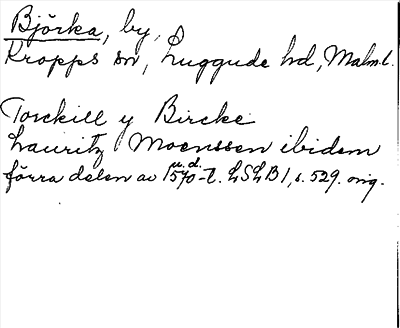 Björka, by,
Kropps sn, Luggude hd, Malm.l.
Torckill y Bircke
Lauritz Moenssen ibidem
u.d.
förra delen av 1570-t. LSLB1, s. 529. orig.